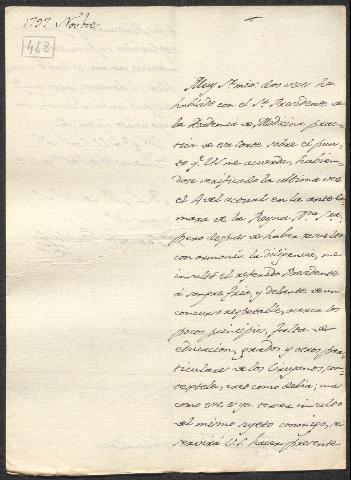 1797 Novbre.
468
Muy Sr. mio: dos veces he
hablado con el Sr. Presidente
de la Academia de Medicina prac-
tica de esta Corte sobre el pun-
to q.e Vd. me acuerda, habien-
dose verificado la ultima vez
el 4 del actual en la anteca-
mara de la Reyna Ntra. Sra.
pero despues de haber evacuado
con armonía la diligencia, me
insultó el referido Presidente
á sangre fria, y delante de un
concurso respetable, acerca los
pocos principios, falta de
educacion, grados y otros par-
ticulares de los Cirujanos, con-
textele, creo como debia; mas
como este es ya tercer insulto
del mismo sujeto conmigo, se
servirá Vd. hacer presente